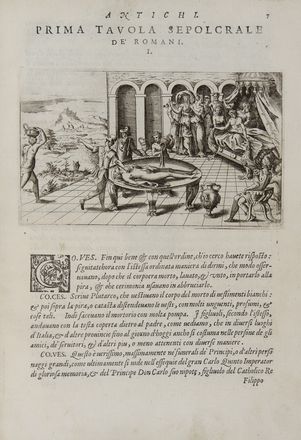 ANTICHI. 7
PRIMA TAVOLA SEPOLCRALE
DE' ROMANI.
I.
CO.VES. Fin qui bene & con quest'ordine, ch'io cerco havete risposto:
seguitate hora con l'istessa ordinata maniera di dirmi, che modo osser-
uauano, dopo che il corpo era morto, lauato, & vnto, in portarlo alla
pira, & che cerimonia usauano in abbrucciarlo.
CO.CES. Scriue Plutarco, che uestiuano il corpo del morto di uestimenti bianchi:
& poi sopra la pira, o catasta distendeuano le uesti, con molti unguenti, profumi, &
cose tali. Indi faceuano il mortorio con molta pompa. I figliuoli, secondo l'istesso,
andauano con la testa coperta dietro al padre, come uediamo, che in diuersi luoghi
d'Italia, & d'altre prouincie sino al giorno d'hoggi anchor si costuma nelle persone de gli
amici, de' seruitori, & d'altri piu, o meno attenenti con diuerse maniere.
CO.VES. Questo è uerissimo, massimamente ne' funerali de' Principi, o d'altri perso-
naggi grandi, come ultimamente si uide nell'essequie del gran Carlo Quinto Imperator
di gloriosa memoria, & del Principe Don Carlo suo nipote, figliuolo del Catholico Re
Filippo